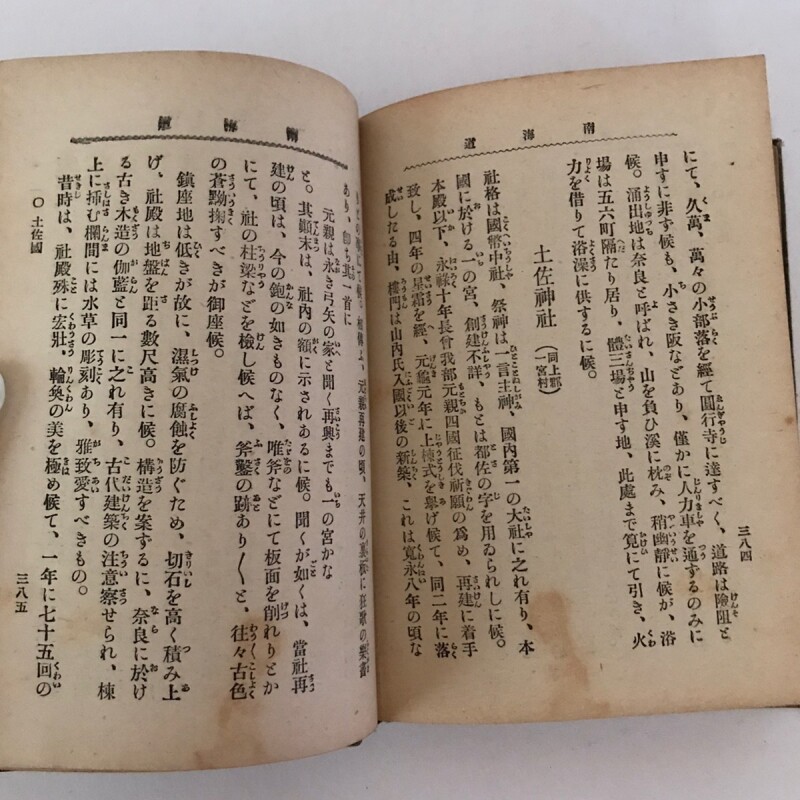 南海道
三八四
にて、久萬、萬々の小部落を經て圓行寺に達すべく、道路は險阻と
申すに非ず候も、小さき阪などあり、僅かに人力車を通ずるのみに
候。涌出地は奈良と呼ばれ、山を負ひ溪に枕み、稍幽靜に候が、浴
場は五六町隔たり居り、體三場と申す地、此處まで筧にて引き、火
力を借りて浴澡に供するに候。
土佐神社(同上郡一宮村)
社格は國幣中社、祭神は一言主神、國內第一の大社に之れ有り、本
國に於ける一の宮、創建不詳、もとは都佐の字を用ゐられしに候。
本殿以下、永祿十年長曾我部元親四國征伐祈願の爲め、再建に着手
致し、四年の星霜を經、元龜元年に上棟式を擧げ候て、同二年に落
成したる由、樓門は山內氏入國以後の新築、これは寛永八年の頃な
南海道
あり、
其一首に
元親は永き弓矢の家と聞く再興までも一の宮かな
と。其顚末は、社內の額に示されあるに候。聞くが如くは、當社再
建の頃は、今の鉋の如きものなく、唯斧などにて板面を削れりとか
にて、社の柱梁などを檢し候へば、斧鑿の跡あり〱と、往々古色
の蒼黝掬すべきが御座候。
鎭座地は低きが故に、濕氣の腐蝕を防ぐため、切石を高く積み上
げ、社殿は地盤を距る數尺高きに候。構造を案ずるに、奈良に於け
る古き木造の伽藍と同一に之れ有り、古代建築の注意察せられ、棟
上に挿む欄間には水草の彫刻あり、雅致愛すべきもの。
昔時は、社殿殊に宏壯。輪奐の美を極め候て、一年に七十五回の
〇土佐國
三八五